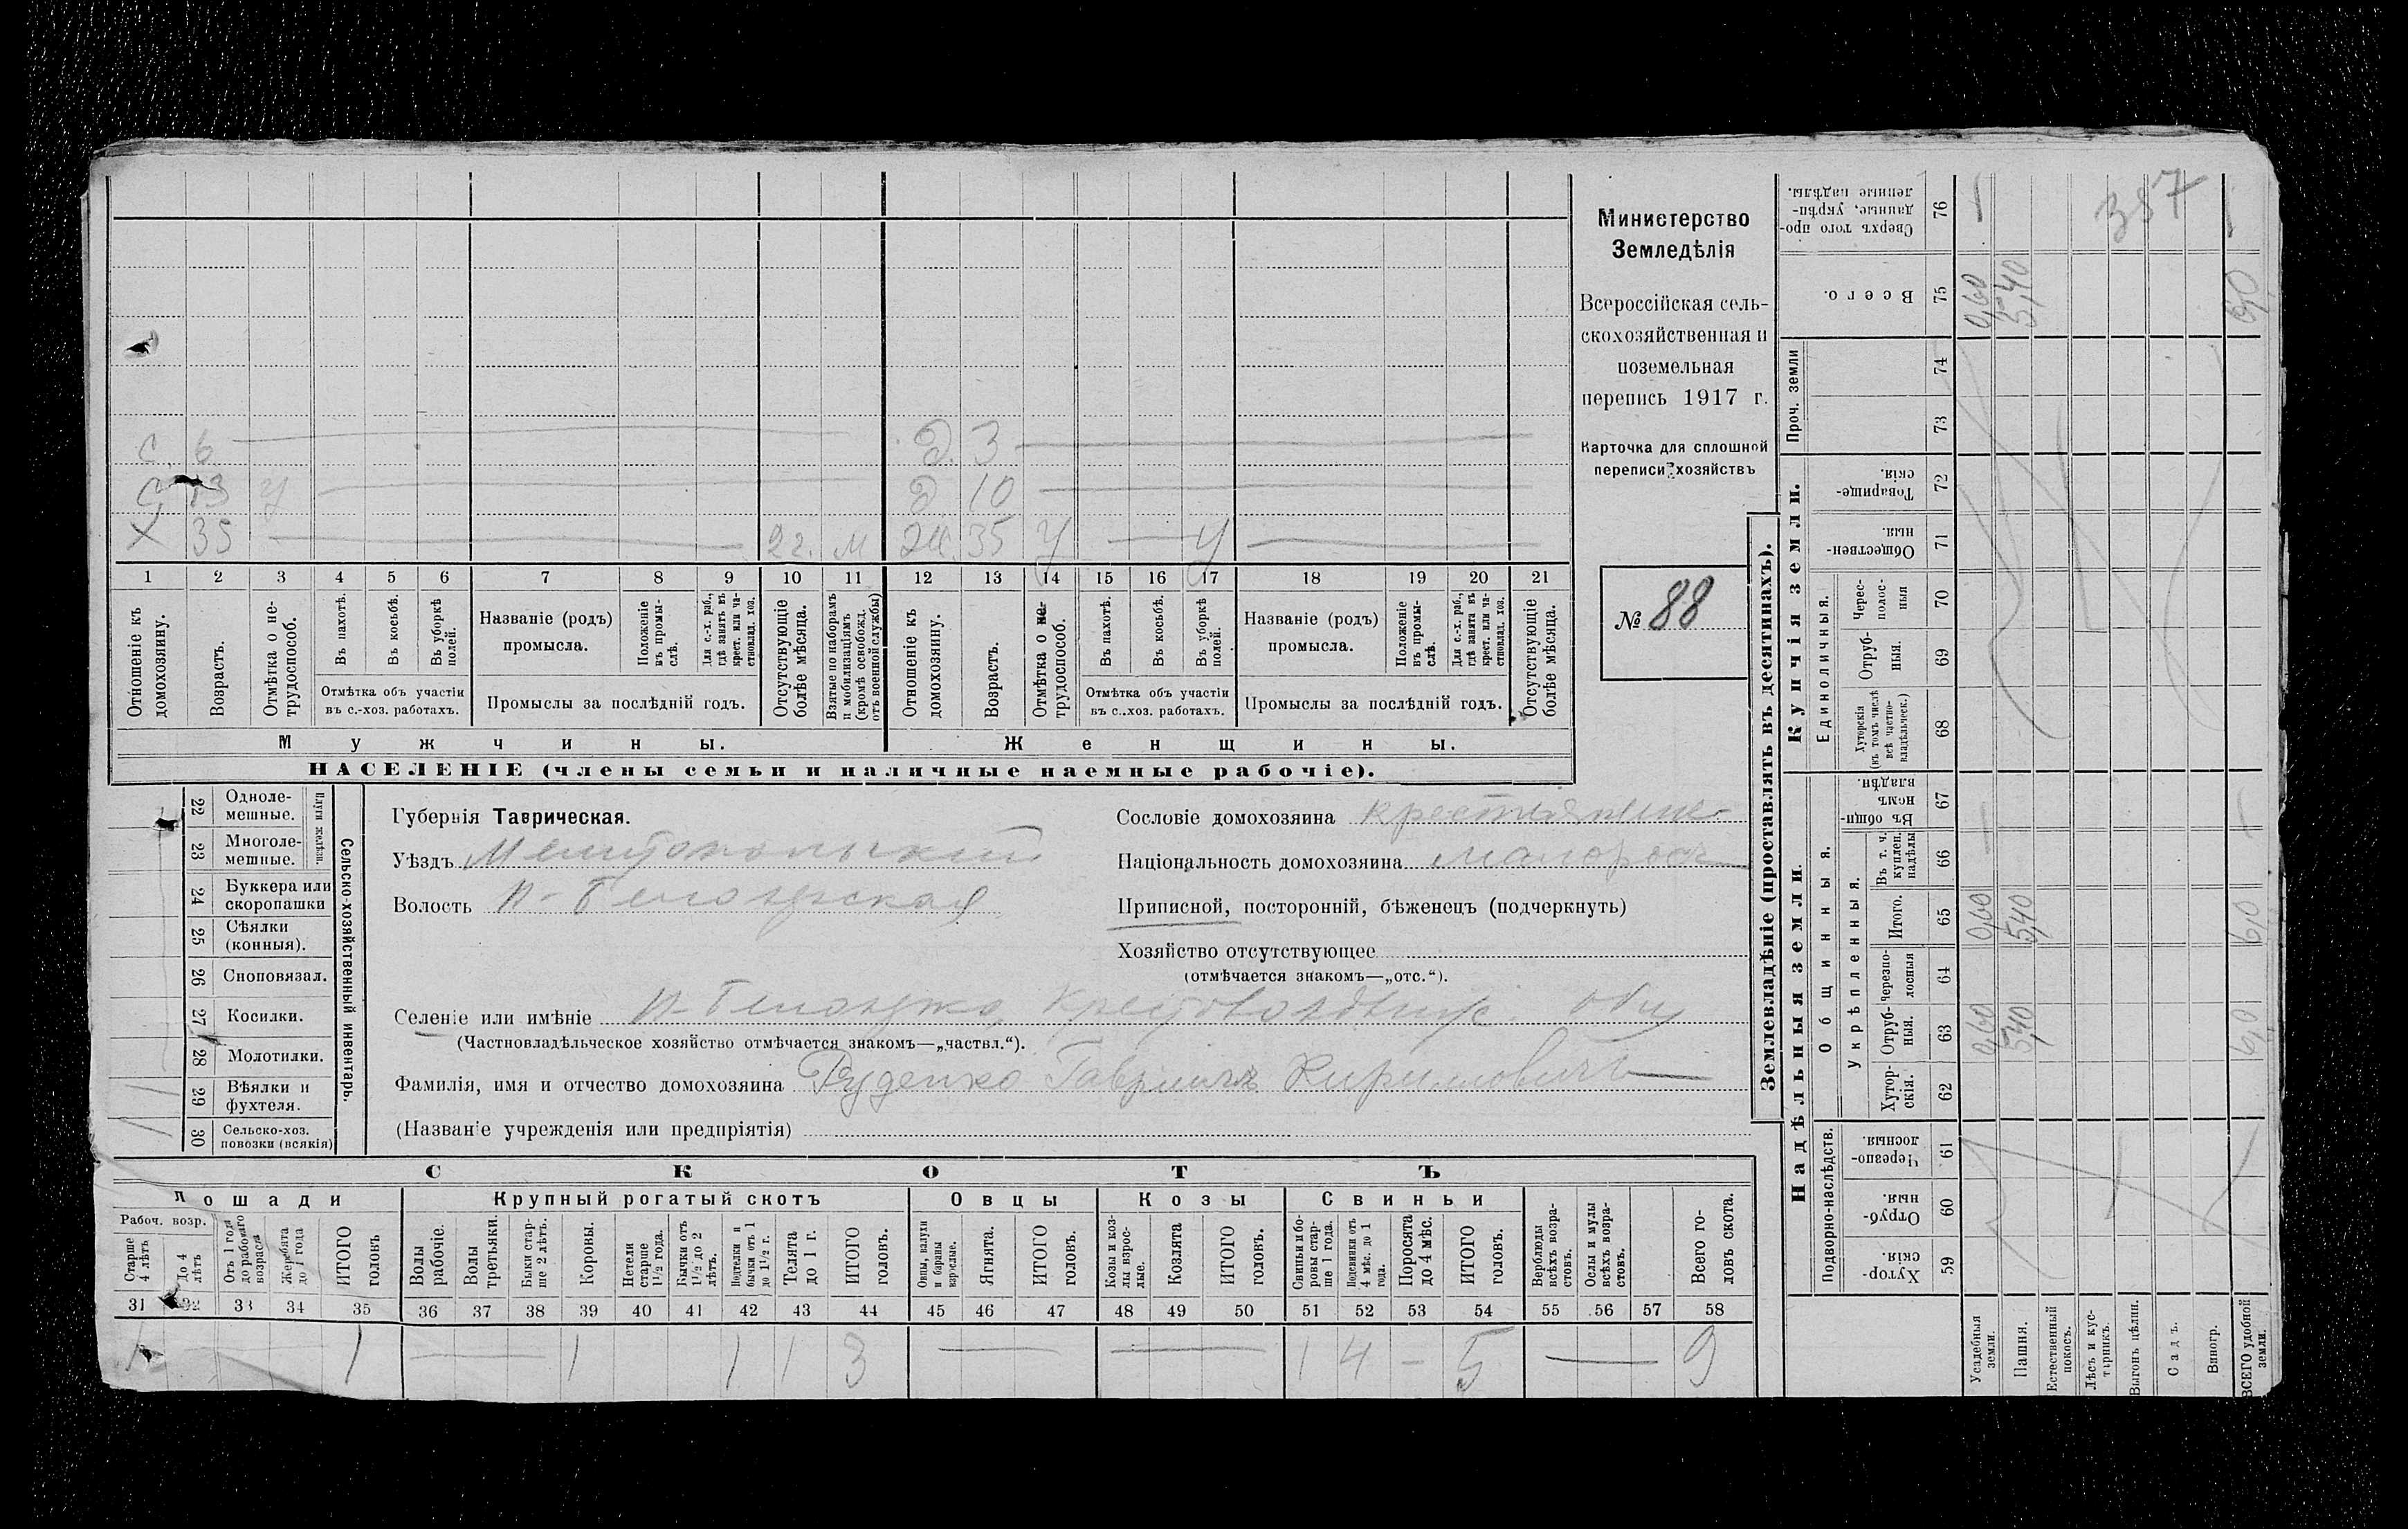 Министерство
Земледѣлія
Всероссійская сель-
скохозяйственная и
поземельная
перепись 1917 г.
Карточка для сплошной
переписи хозяйствъ
№ 88
387
с 6 Д. 3
С 13 У Д 10
Х 35 2 г. м Ж. 35 У У
1 2 3 4 5 6 7 8 9 10 11 12 13 14 15 16 17 18 19 20 21
Отношеніе къ домохозяину.
Возрастъ.
Отмѣтка о не-трудоспособ.
Въ пахотѣ.
Въ косьбѣ.
Въ уборкѣ полей.
Отмѣтка объ участіи
въ с.-хоз. работахъ.
Названіе (родъ)
промысла.
Положеніе въ промы-слѣ.
Для с.-х. раб., гдѣ занятъ въ крест. или ча-стновлад. хоз.
Промыслы за послѣдній годъ.
Отсутствующіе болѣе мѣсяца.
Взятые по наборамъ и мобилизаціямъ (кромѣ освобожд. отъ военной службы)
Отношеніе къ домохозяину.
Возрастъ.
Отмѣтка о не-трудоспособ.
Въ пахотѣ.
Въ косьбѣ.
Въ уборкѣ полей.
Отмѣтка объ участіи
въ с..хоз. работахъ.
Названіе (родъ)
промысла.
Положеніе въ промы-слѣ.
Для с.-х. раб., гдѣ занята въ крест. или ча-стновлад. хоз.
Промыслы за послѣдній годъ.
Отсутствующіе болѣе мѣсяца.
Мужчины.
Женщины.
НАСЕЛЕНІЕ (члены семьи и наличные наемные рабочіе).
Сельско-хозяйственный инвентарь.
22 Одноле-мешные.
23 Многоле-мешные.
24 Буккера или скоропашки
25 Сѣялки (конныя).
26 Сноповязал.
27 Косилки.
28 Молотилки.
29 Вѣялки и фухтеля. 1
30 Сельско-хоз. повозки (всякія) 1
Губернія Таврическая.
Уѣздъ Мелитопольскій
Волость Н-Белозерская
Сословіе домохозяина крестьянинъ
Національность домохозяина малоросъ
Приписной, посторонній, бѣженецъ (подчеркнуть)
Хозяйство отсутствующее
(отмѣчается знакомъ—„отс.“).
Селеніе или имѣніе Н-Белозерка Крестовоздвиж. общ
(Частновладѣльческое хозяйство отмѣчается знакомъ—„частвл.“).
Фамилія, имя и отчество домохозяина Руденко Гавріилъ Кириловичъ
(Названіе учрежденія или предпріятія)
СКОТЪ
Лошади
Крупный рогатый скотъ
Овцы
Козы
Свиньи
Рабоч. возр.
Старше 4 лѣтъ
До 4 лѣтъ
Отъ 1 года до рабочаго возраста
Жеребята до 1 года
ИТОГО головъ
Волы рабочіе.
Волы третьяки.
Быки стар-ше 2 лѣтъ.
Коровы.
Нетели старше 1½ года.
Бычки отъ 1½ до 2 лѣтъ.
Подтелки и бычки отъ 1 до 1½ г.
Телята до 1 г.
ИТОГО головъ.
Овцы, валухи и бараны взрослые.
Ягнята.
ИТОГО головъ.
Козы и коз-лы взрос-лые.
Козлята
ИТОГО головъ.
Свиньи и бо-ровы стар-ше 1 года.
Подсвинки отъ 4 мѣс. до 1 года.
Поросята до 4 мѣс.
ИТОГО головъ.
Верблюды всѣхъ возра-стовъ.
Ослы и мулы всѣхъ возра-стовъ.
Всего го-ловъ скота.
31 32 33 34 35 36 37 38 39 40 41 42 43 44 45 46 47 48 49 50 51 52 53 54 55 56 57 58
1 1 — 1 1 1 3 — — 1 4 — 5 — 9
Землевладѣніе (проставлять въ десятинахъ).
Надѣльныя земли.
Купчія земли.
Проч. земли
Подворно-наслѣдств.
Общинныя.
Укрѣпленныя.
Единоличныя.
Хутор-скія. 59
Отруб-ныя. 60
Черезпо-лосныя. 61
Хутор-скія. 62
Отруб-ныя. 63
Черезпо-лосныя 64
Итого. 65
Въ т. ч. куплен. надѣлы 66
Въ общи-немъ владѣн. 67
Хуторскія (въ томъ числѣ всѣ частно-владѣльческ.) 68
Отруб-ныя. 69
Черес-полос-ныя 70
Обществен-ныя. 71
Товарище-скія. 72
73
74
Всего. 75
Сверхъ того про-данные, укрѣп-ленные надѣлы. 76
Усадебныя земли. 0,60 0,60 0,60
Пашня. 5,40 5,40 5,40
Естественный покосъ.
Лѣсъ и кус-тарникъ.
Выгонъ цѣлин.
Садъ.
Виногр.
ВСЕГО удобной земли. 6,0 6,0 6,0